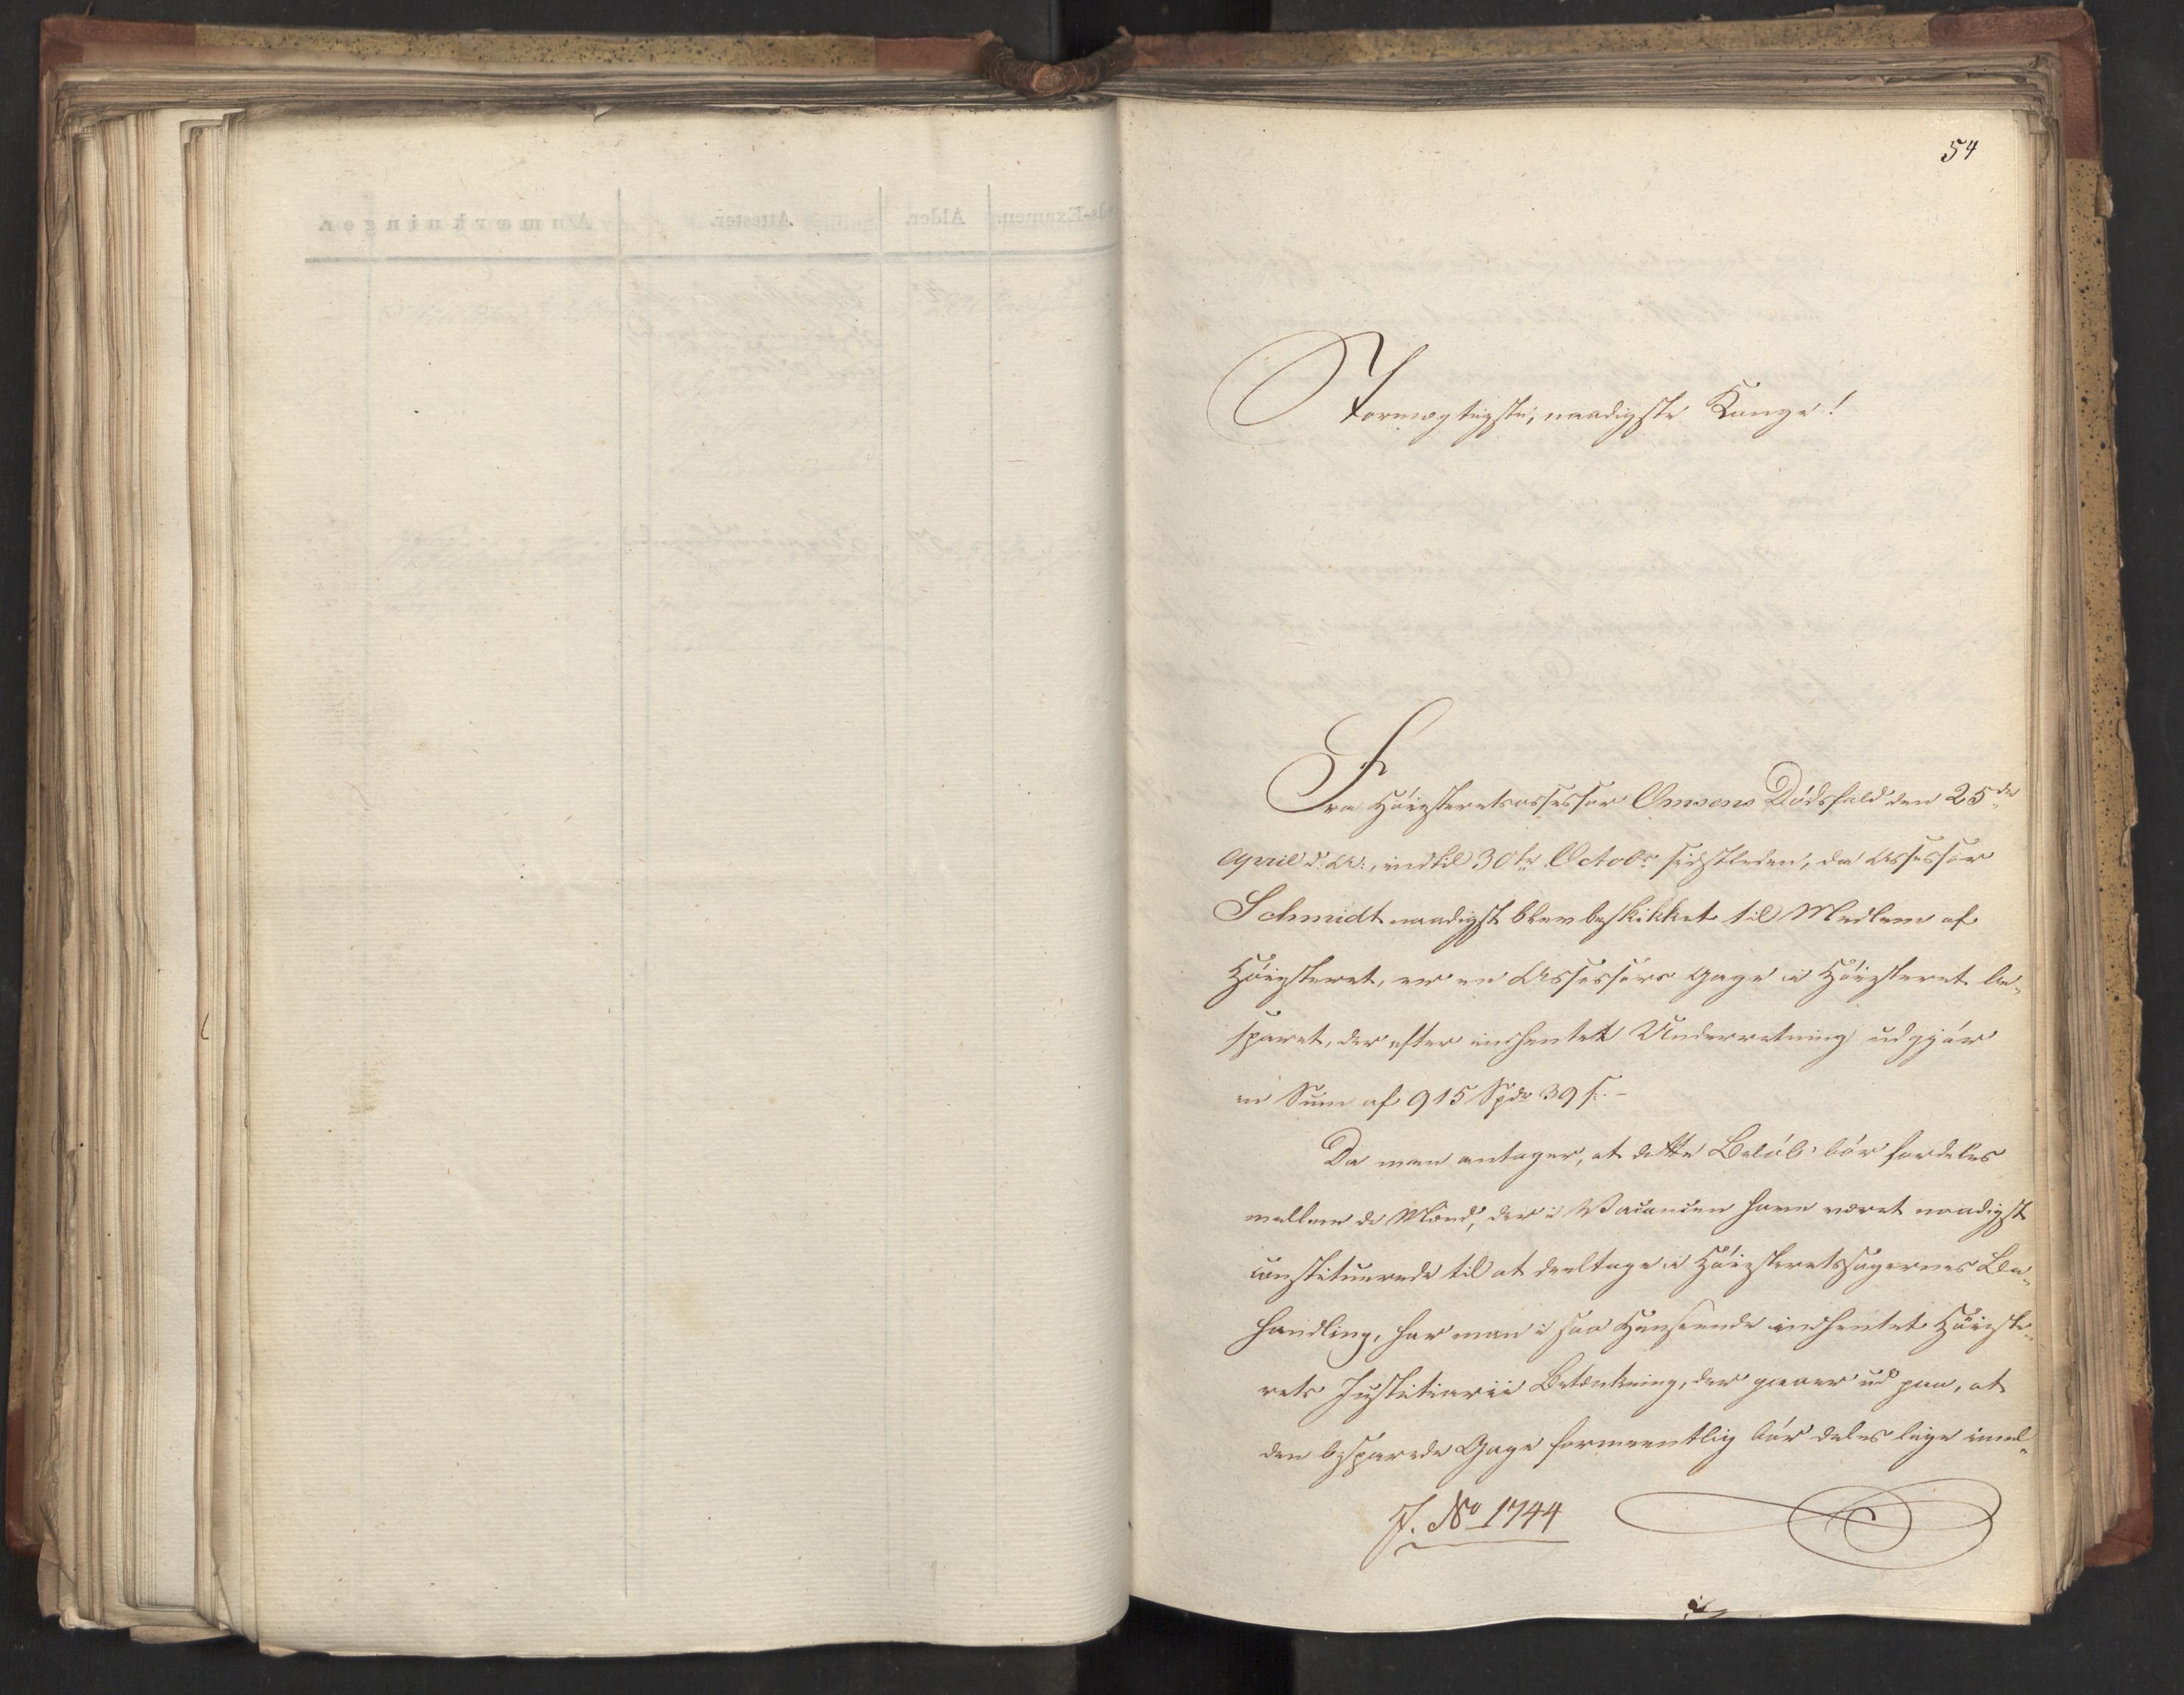 54
Stormægtigste, naadigste Konge!
Fra Höiesteretsassessor Omsens Dödsfald den 25de
April d: A:, indtil 30te Octobr sidstleden, da Assessor
Schmidt naadigst blev beskikket til Medlem af
Höiesteret, er en Assessors Gage i Höiesteret be-
sparet, der efter indhentet Underretning udgjör
en Sum af 915 Spdr 39 s.-
Da man antager, at dette Belöb bör fordeles
mellem de Mænd, der i Vacancen have været naadigst
constituerede til at deeltage i Höiesteretssagernes Be-
handling, har man i saa Henseende indhentet Höieste-
rets Justitiarii Betænkning, der gaaer ud paa, at
den besparede Gage formeentlig bör deles lige imel-
J. No 1744